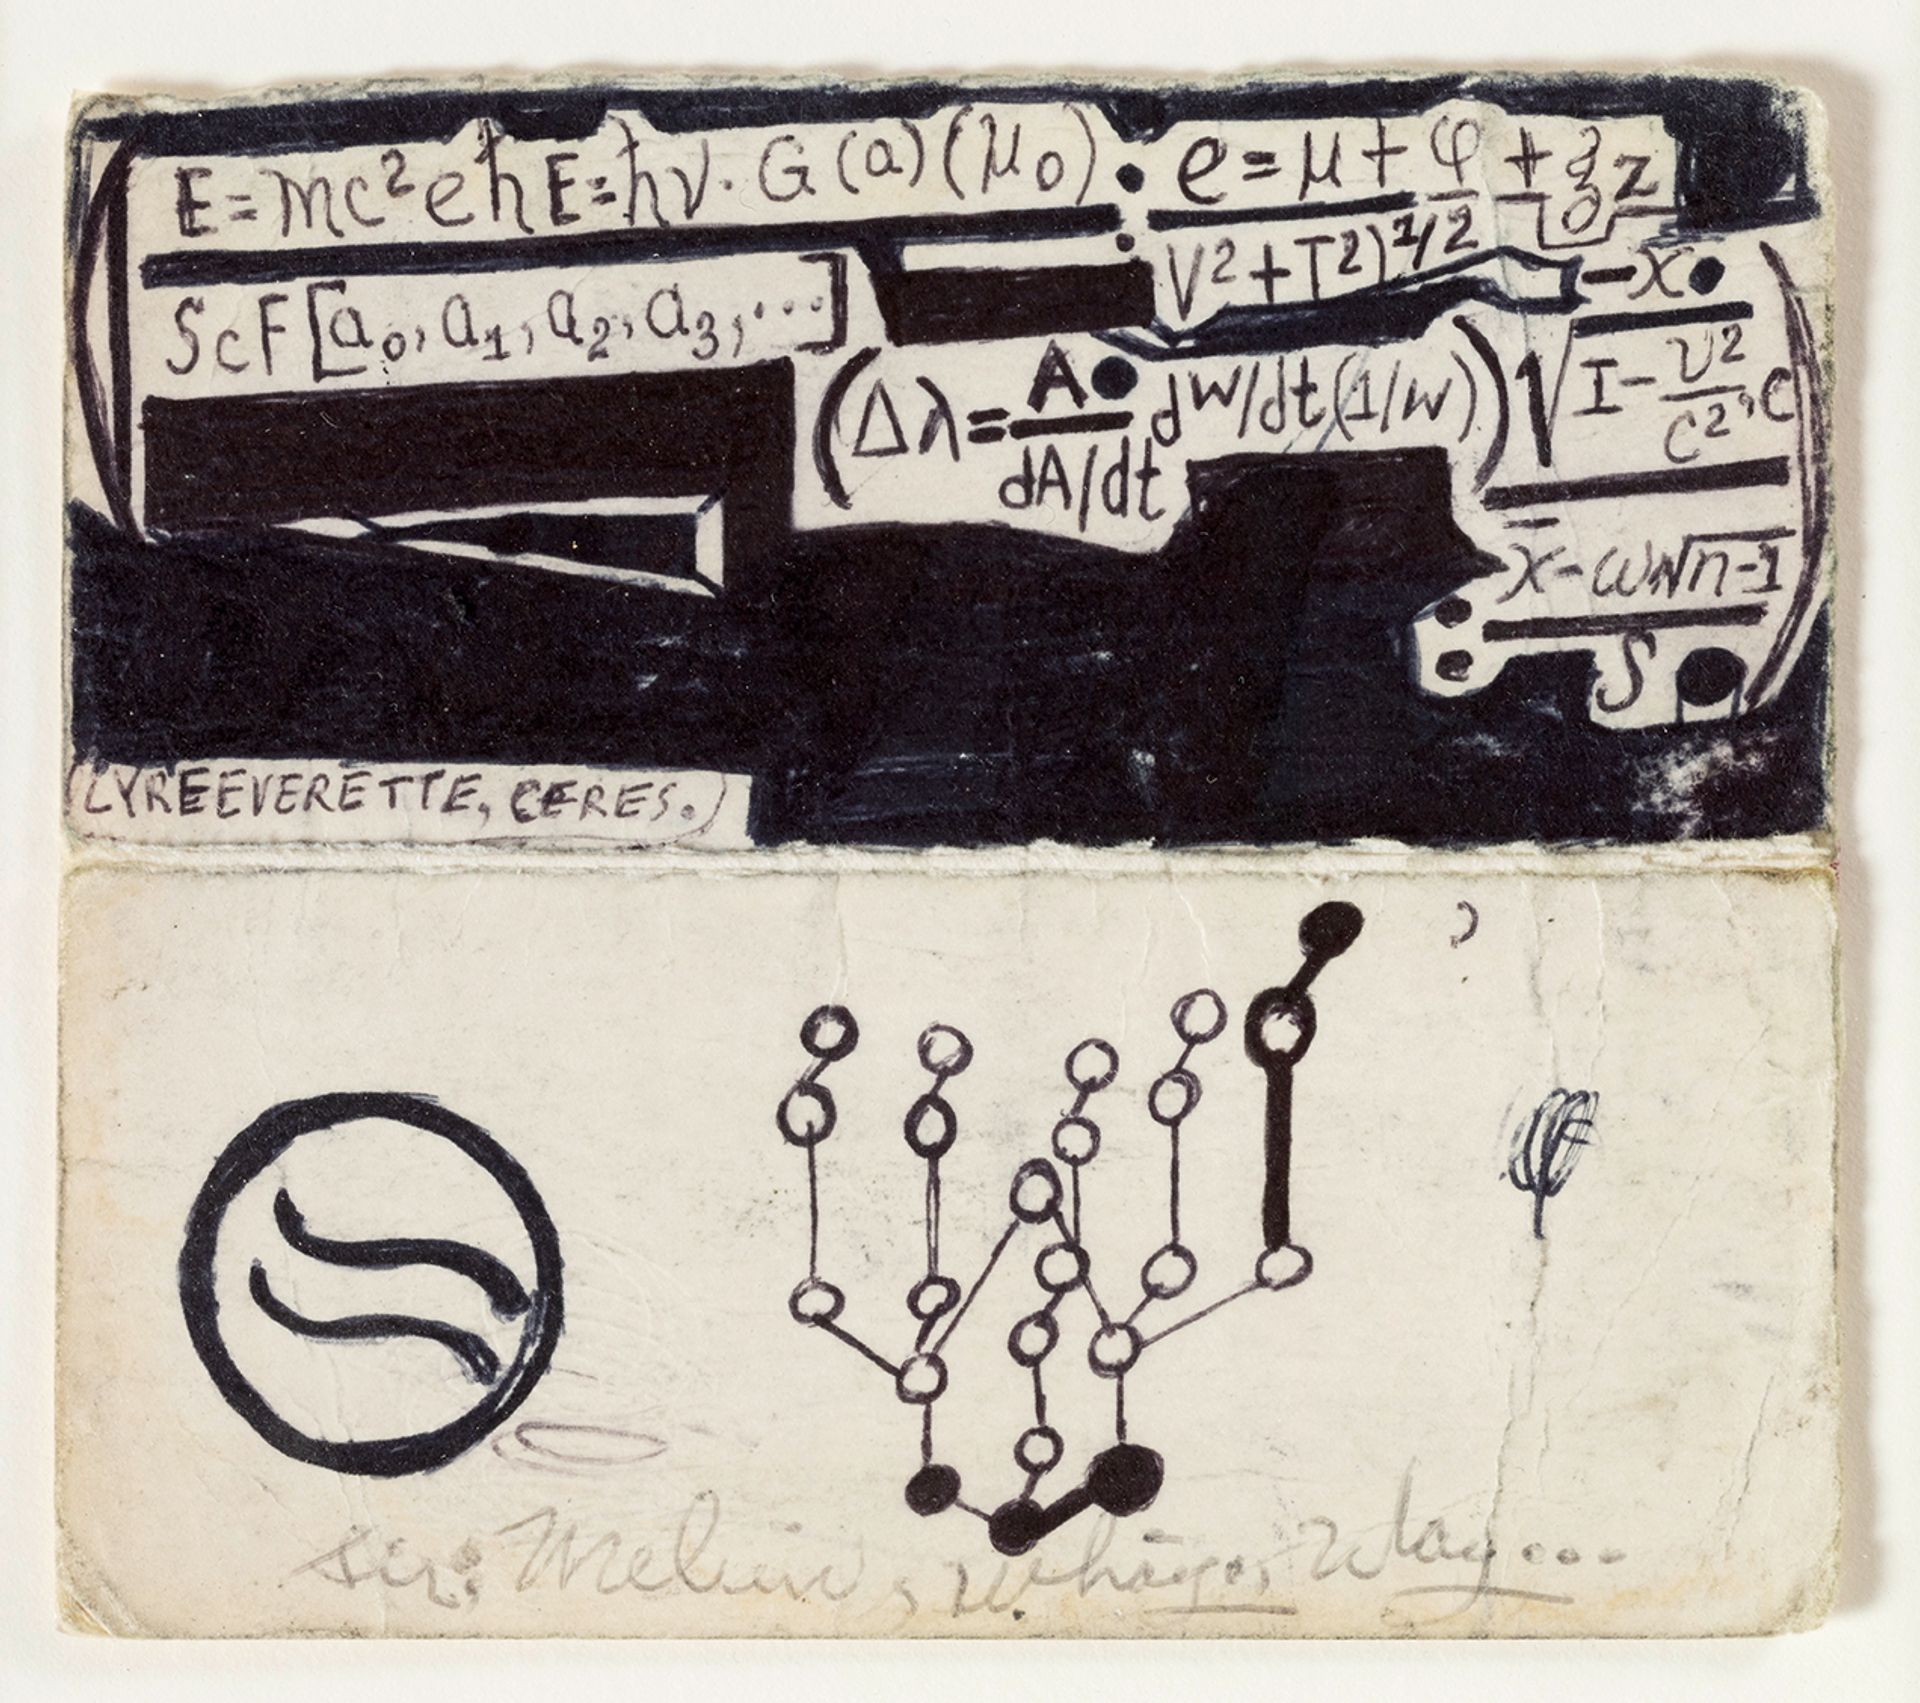 E=mc²eħE=ħν·G(a)(μ₀):e=μ+φ+
V²+T²)^1/2 -x•
ScF[a₀,a₁,a₂,a₃,...]
(Δλ=A•/dA/dt dW/dt(1/W))√I-υ²/c²,c
x̄-ωN√n-1
S
LYREEVERETTE, CERES.
sir: Melvin, Way...